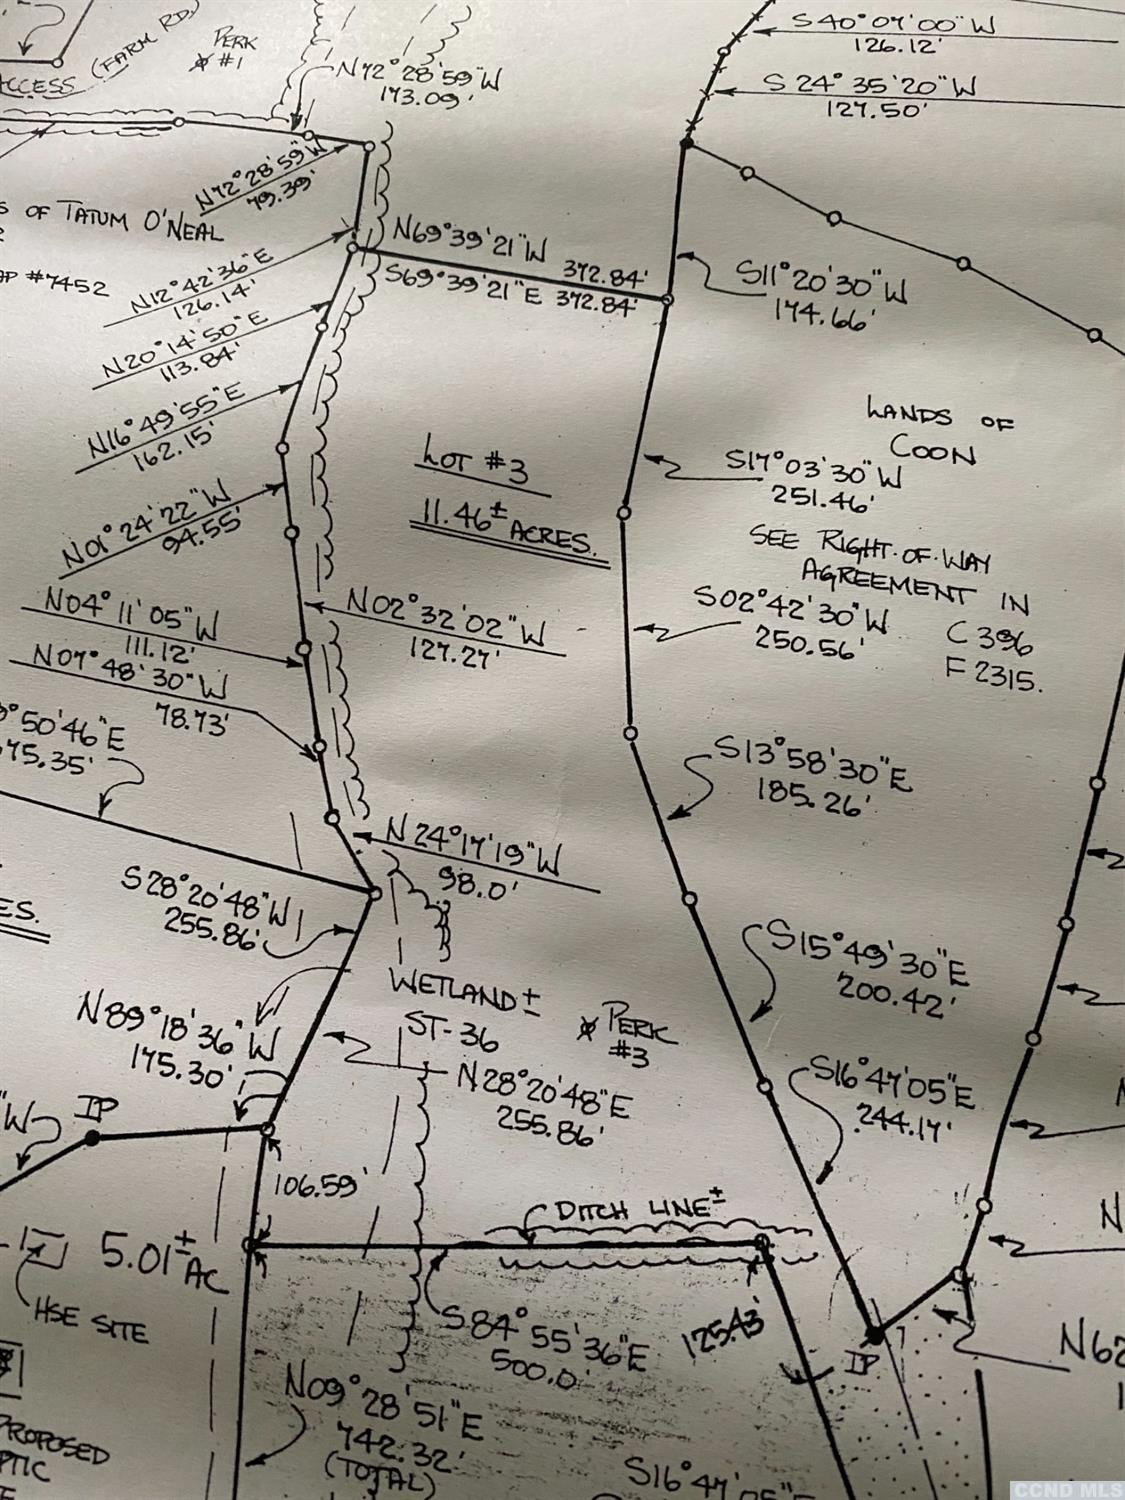 S40°07'00"W
126.12'
S 24° 35'20"W
127.50'
PERK
#1
ACCESS (FARM RD.)
N72°28'59"W
173.09'
N72°28'59"W
79.39'
OF TATUM O'NEAL
#7452
N69°39'21"W 372.84'
S69°39'21"E 372.84'
N12°42'36"E
126.14'
N20°14'50"E
113.84'
N16°49'55"E
162.15'
N01°24'22"W
94.55'
S11°20'30"W
174.66'
LANDS OF
COON
SEE RIGHT-OF-WAY
AGREEMENT IN
C 396
F 2315.
S17°03'30"W
251.46'
LOT #3
11.46± ACRES.
N04°11'05"W
111.12'
N02°32'02"W
127.27'
S02°42'30"W
250.56'
N07°48'30"W
78.73'
°50'46"E
75.35'
S13°58'30"E
185.26'
N24°17'19"W
98.0'
S28°20'48"W
255.86'
ES.
S15°49'30"E
200.42'
WETLAND±
ST-36
PERK
#3
N89°18'36"W
175.30'
N28°20'48"E
255.86'
S16°47'05"E
244.17'
"W
IP
106.59'
DITCH LINE±
5.01± AC
HSE SITE
S84°55'36"E
500.0'
125.43'
IP
N62
N09°28'51"E
742.32'
(TOTAL)
PROPOSED
PTIC
S16°47'05"E
CCND MLS